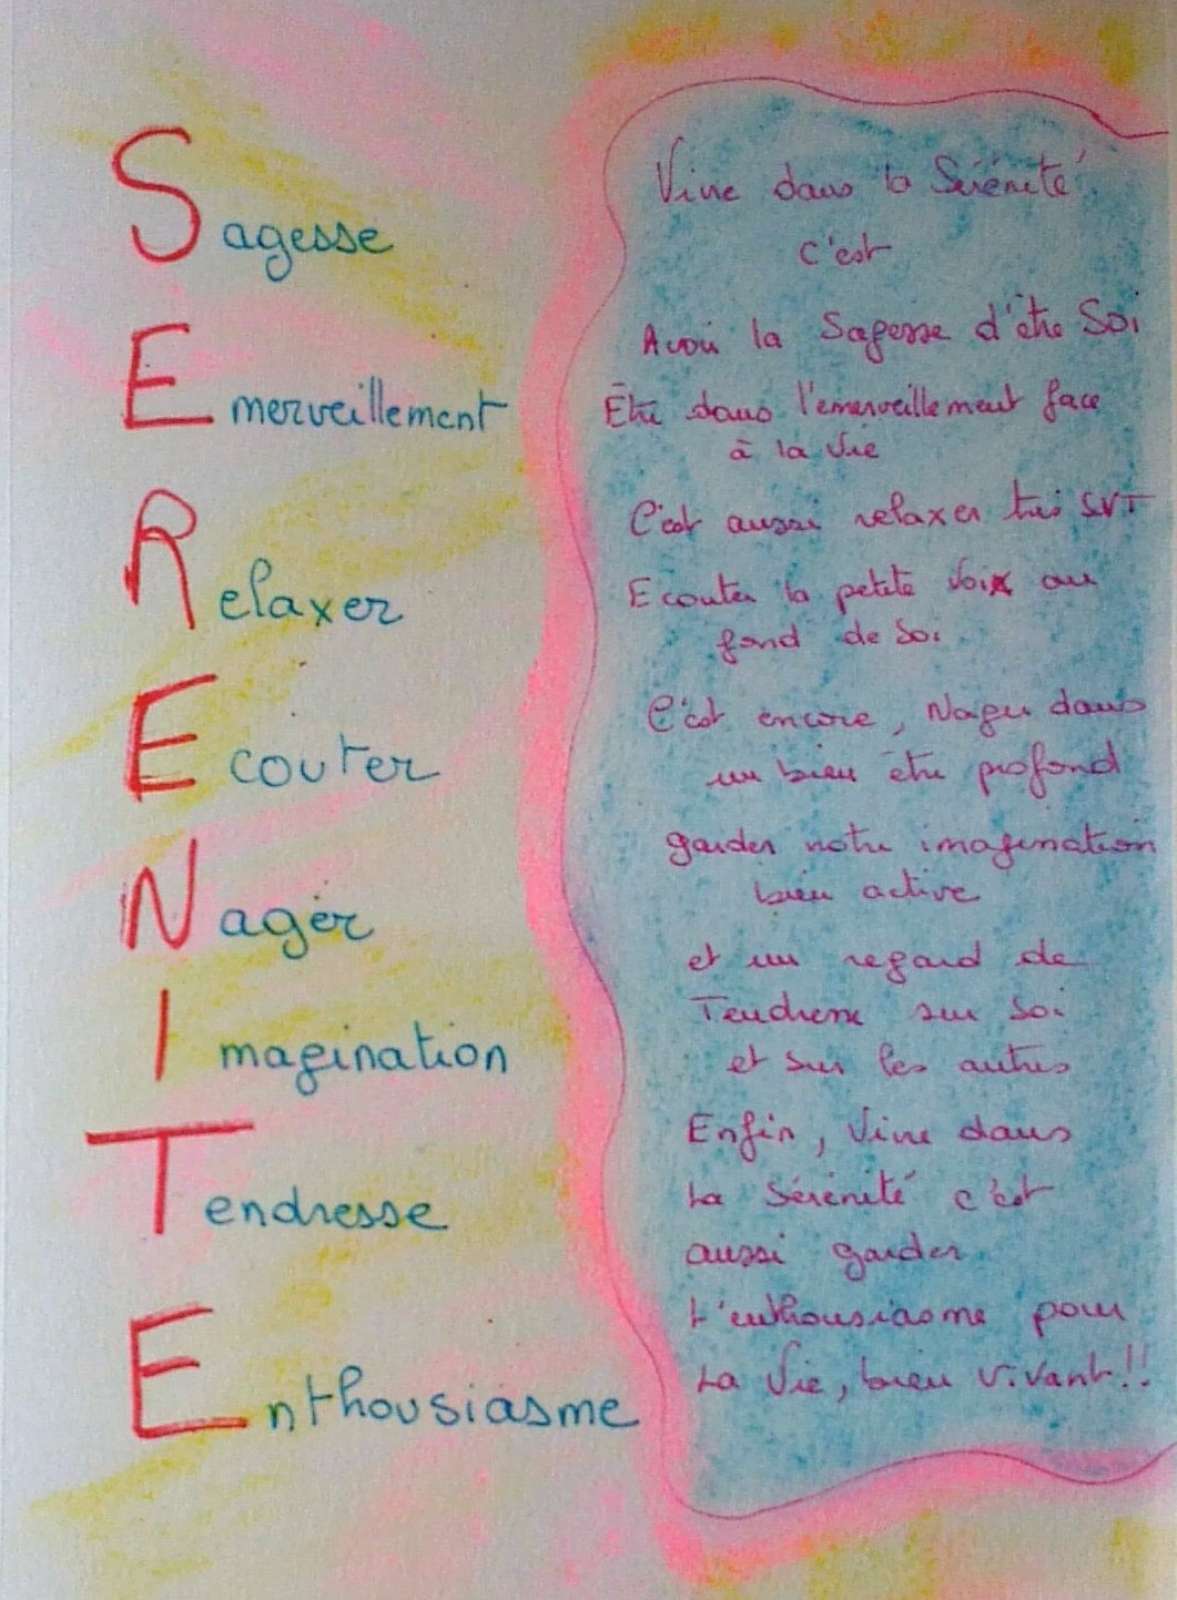 Sagesse
Emerveillement
Relaxer
Ecouter
Nager
Imagination
Tendresse
Enthousiasme
Vivre dans la Sérénité
c'est
Avoir la Sagesse d'être Soi
Etre dans l'émerveillement face
à la Vie
C'est aussi relaxer très SVT
Ecouter la petite voix au
fond de Soi
C'est encore, Nager dans
un bien être profond
garder notre imagination
bien active
et un regard de
Tendresse sur Soi
et sur les autres
Enfin, Vivre dans
La Sérénité c'est
aussi garder
L'enthousiasme pour
La Vie, bien vivant!!